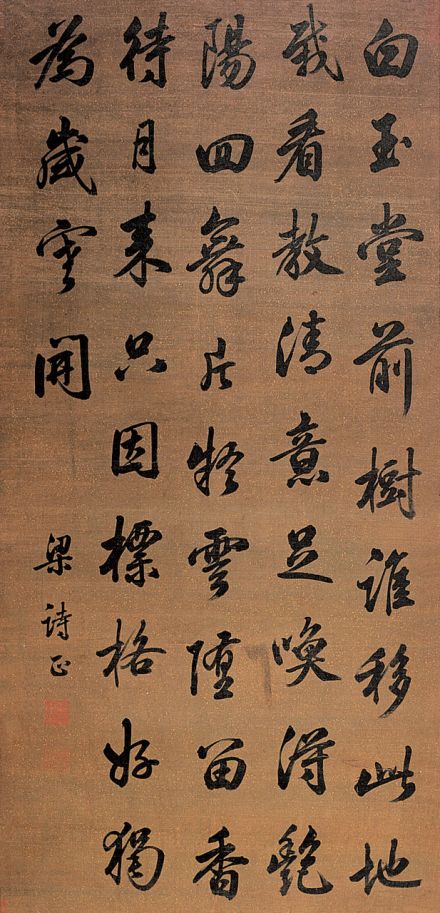 白玉堂前樹誰移此地
栽看教清意足喚得艷
陽回舞片凝雲墮留香
待月来只因標格好獨
為歲寒開
梁詩正